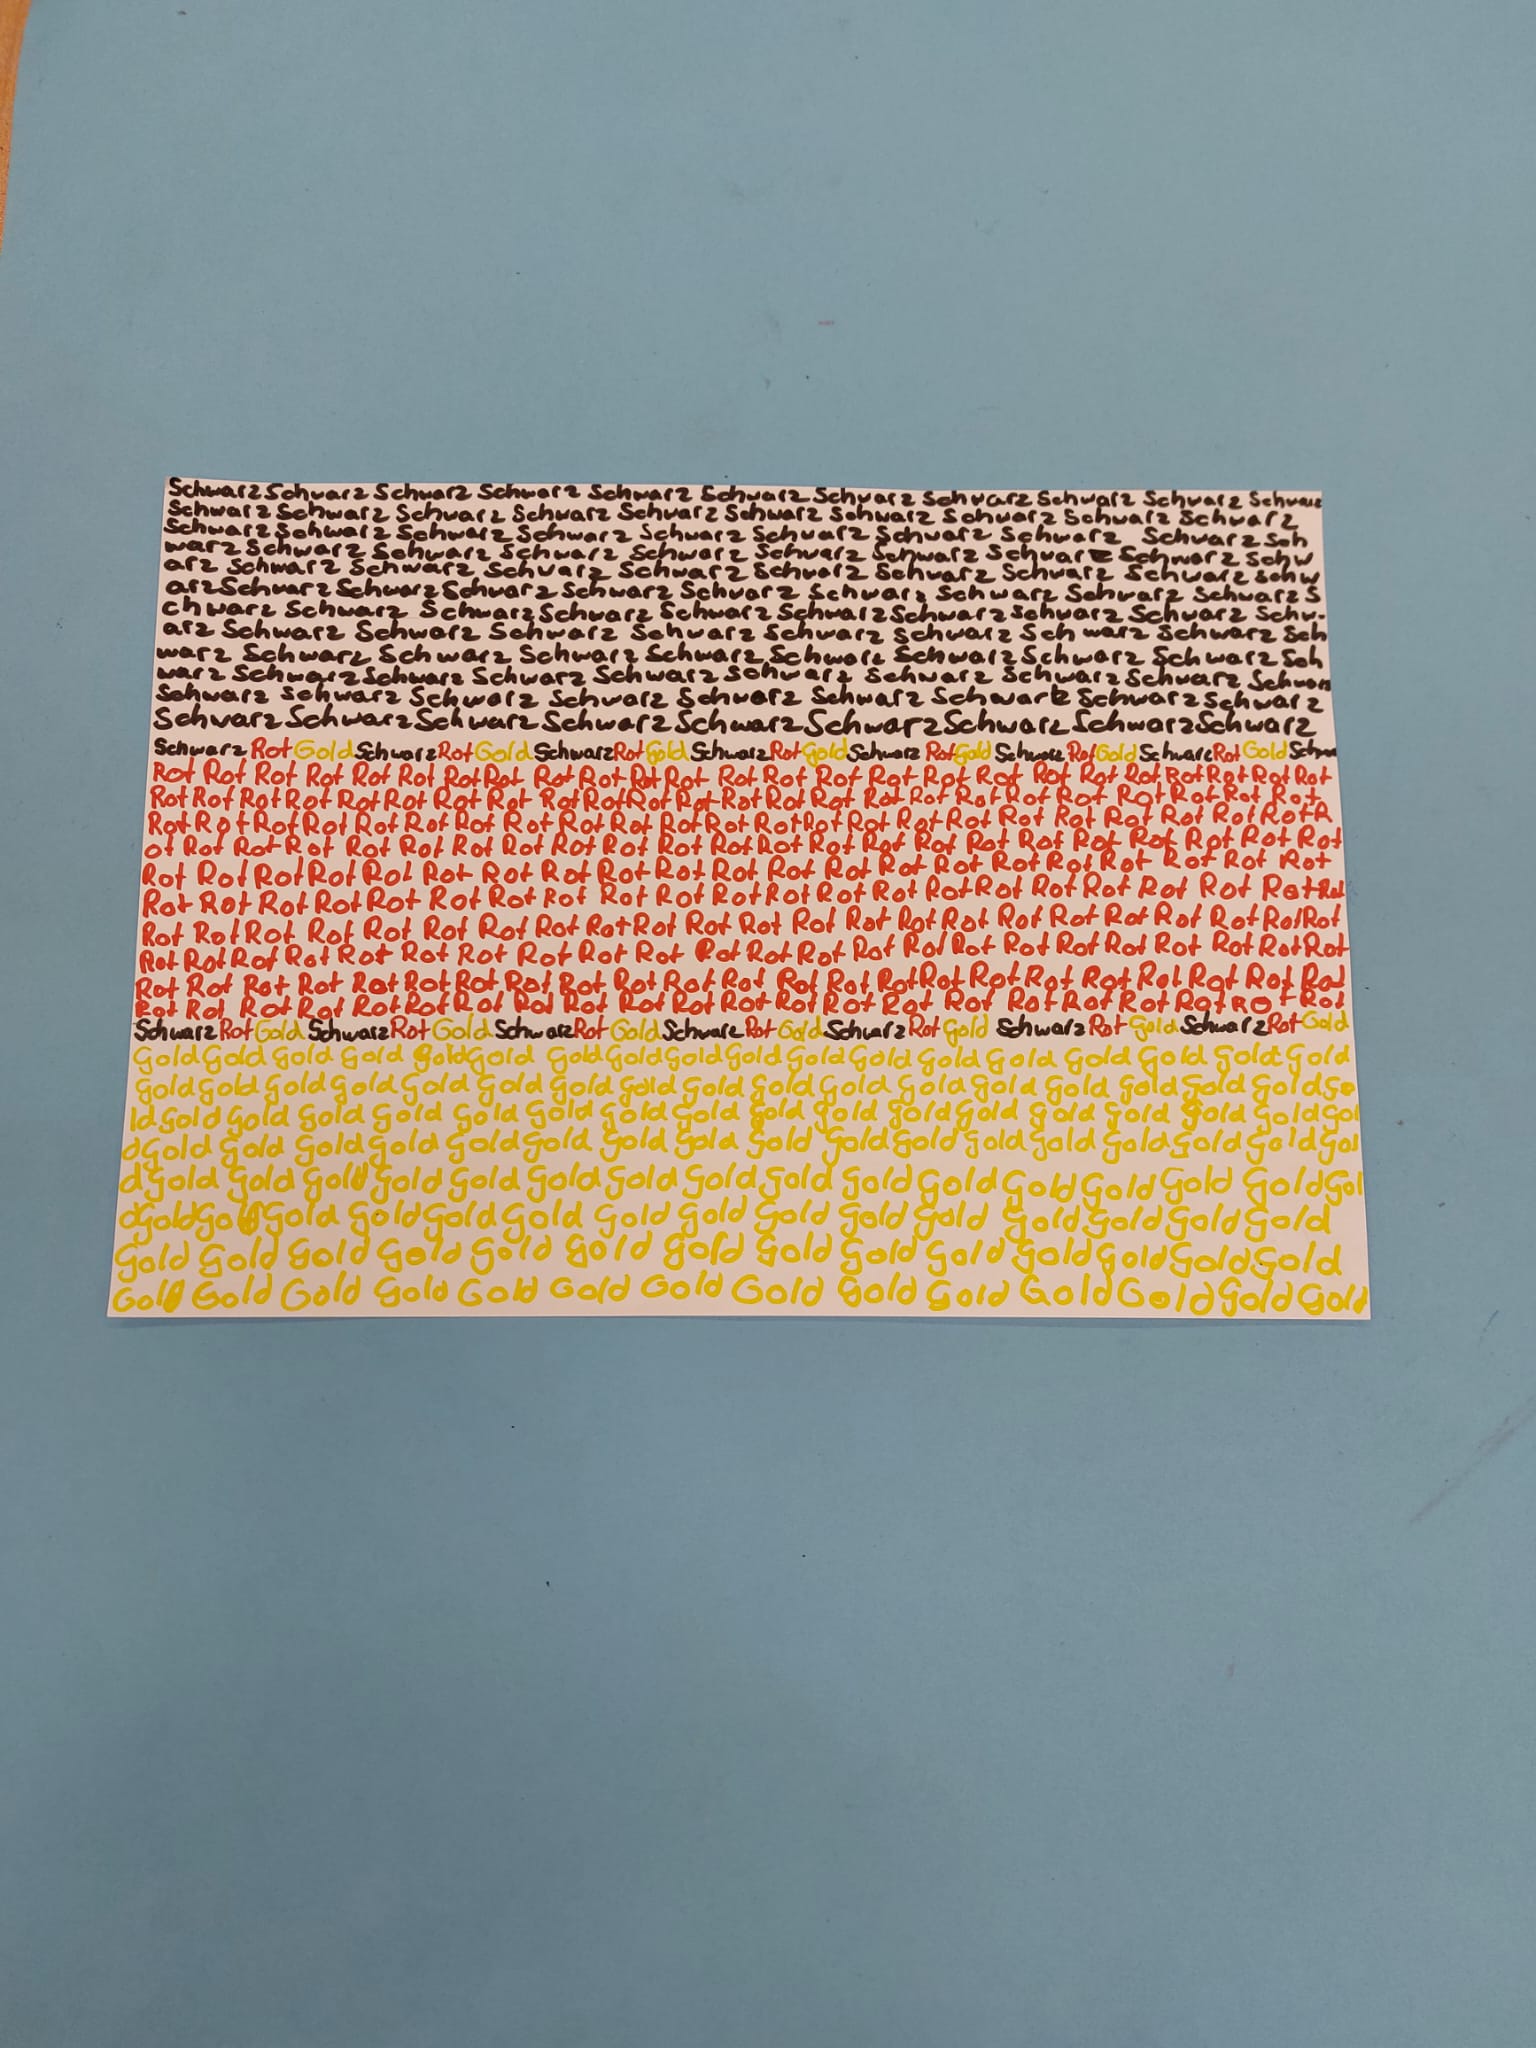 Schwarz Schwarz Schwarz Schwarz Schwarz Schwarz Schwarz Schwarz Schwarz Schwarz Schwarz
Schwarz Schwarz Schwarz Schwarz Schwarz Schwarz Schwarz Schwarz Schwarz Schwarz
Schwarz Schwarz Schwarz Schwarz Schwarz Schwarz Schwarz Schwarz Schwarz Sch
warz Schwarz Schwarz Schwarz Schwarz Schwarz Schwarz Schwarz Schwarz Schw
arz Schwarz Schwarz Schwarz Schwarz Schwarz Schwarz Schwarz Schwarz Schw
arz Schwarz Schwarz Schwarz Schwarz Schwarz Schwarz Schwarz Schwarz Schwarz S
chwarz Schwarz Schwarz Schwarz Schwarz Schwarz Schwarz Schwarz Schwarz Schw
arz Schwarz Schwarz Schwarz Schwarz Schwarz Schwarz Schwarz Schwarz Sch
warz Schwarz Schwarz Schwarz Schwarz Schwarz Schwarz Schwarz Schwarz Sch
warz Schwarz Schwarz Schwarz Schwarz Schwarz Schwarz Schwarz Schwarz Schwarz
Schwarz Schwarz Schwarz Schwarz Schwarz Schwarz Schwarz Schwarz Schwarz
Schwarz Schwarz Schwarz Schwarz Schwarz Schwarz Schwarz Schwarz Schwarz
Schwarz Rot Gold Schwarz Rot Gold Schwarz Rot Gold Schwarz Rot Gold Schwarz Rot Gold Schwarz Rot Gold Schwarz Rot Gold Schwarz
Rot Rot Rot Rot Rot Rot Rot Rot Rot Rot Rot Rot Rot Rot Rot Rot Rot Rot Rot Rot Rot Rot Rot Rot Rot
Rot Rot Rot Rot Rot Rot Rot Rot Rot Rot Rot Rot Rot Rot Rot Rot Rot Rot Rot Rot Rot Rot Rot Rot
Rot Rot Rot Rot Rot Rot Rot Rot Rot Rot Rot Rot Rot Rot Rot Rot Rot Rot Rot Rot Rot Rot Rot R
ot Rot Rot Rot Rot Rot Rot Rot Rot Rot Rot Rot Rot Rot Rot Rot Rot Rot Rot Rot Rot Rot Rot
Rot Rot Rot Rot Rot Rot Rot Rot Rot Rot Rot Rot Rot Rot Rot Rot Rot Rot Rot Rot Rot
Rot Rot Rot Rot Rot Rot Rot Rot Rot Rot Rot Rot Rot Rot Rot Rot Rot Rot Rot Rot Rot Rot
Rot Rot Rot Rot Rot Rot Rot Rot Rot Rot Rot Rot Rot Rot Rot Rot Rot Rot Rot Rot Rot Rot
Rot Rot Rot Rot Rot Rot Rot Rot Rot Rot Rot Rot Rot Rot Rot Rot Rot Rot Rot Rot Rot Rot
Rot Rot Rot Rot Rot Rot Rot Rot Rot Rot Rot Rot Rot Rot Rot Rot Rot Rot Rot Rot Rot Rot
Rot Rot Rot Rot Rot Rot Rot Rot Rot Rot Rot Rot Rot Rot Rot Rot Rot Rot Rot Rot Rot Rot
Schwarz Rot Gold Schwarz Rot Gold Schwarz Rot Gold Schwarz Rot Gold Schwarz Rot Gold Schwarz Rot Gold Schwarz Rot Gold
Gold Gold Gold Gold Gold Gold Gold Gold Gold Gold Gold Gold Gold Gold Gold Gold Gold Gold
Gold Gold Gold Gold Gold Gold Gold Gold Gold Gold Gold Gold Gold Gold Gold Gold Gold Go
ld Gold Gold Gold Gold Gold Gold Gold Gold Gold Gold Gold Gold Gold Gold Gold Gold Gol
d Gold Gold Gold Gold Gold Gold Gold Gold Gold Gold Gold Gold Gold Gold Gold Gold Gol
d Gold Gold Gold Gold Gold Gold Gold Gold Gold Gold Gold Gold Gold Gold Gold Gol
d Gold Gold Gold Gold Gold Gold Gold Gold Gold Gold Gold Gold Gold Gold Gold
Gold Gold Gold Gold Gold Gold Gold Gold Gold Gold Gold Gold Gold Gold
Gold Gold Gold Gold Gold Gold Gold Gold Gold Gold Gold Gold Gold Gold